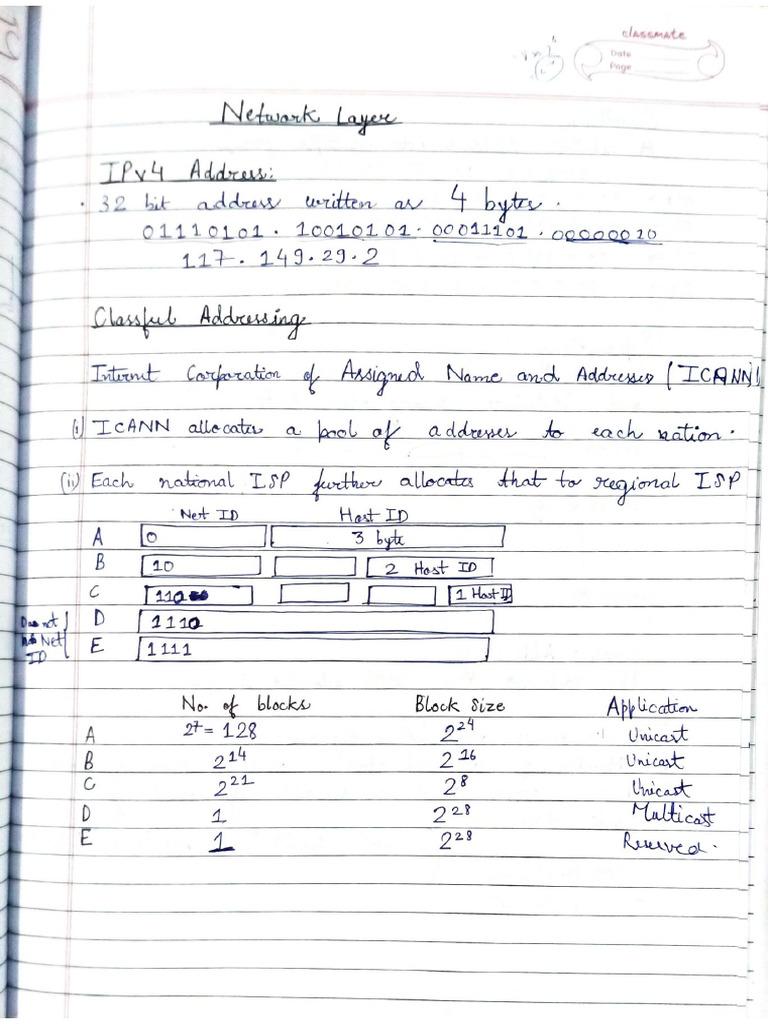 classmate
Date
Page
Network Layer
IPv4 Address:
• 32 bit address written as 4 bytes.
01110101. 10010101. 00011101. 00000010
117. 149. 29. 2
Classful Addressing
Internet Corporation of Assigned Name and Addresses (ICANN)
(i) ICANN allocates a pool of addresses to each nation.
(ii) Each national ISP further allocates that to regional ISP
Net ID Host ID
A 0 3 byte
B 10 2 Host ID
C 110 1 Host ID
D 1110
Does not
Net
ID
E 1111
No. of blocks Block Size Application
A 2⁷ = 128 2²⁴ Unicast
B 2¹⁴ 2¹⁶ Unicast
C 2²¹ 2⁸ Unicast
D 1 2²⁸ Multicast
E 1 2²⁸ Reserved.